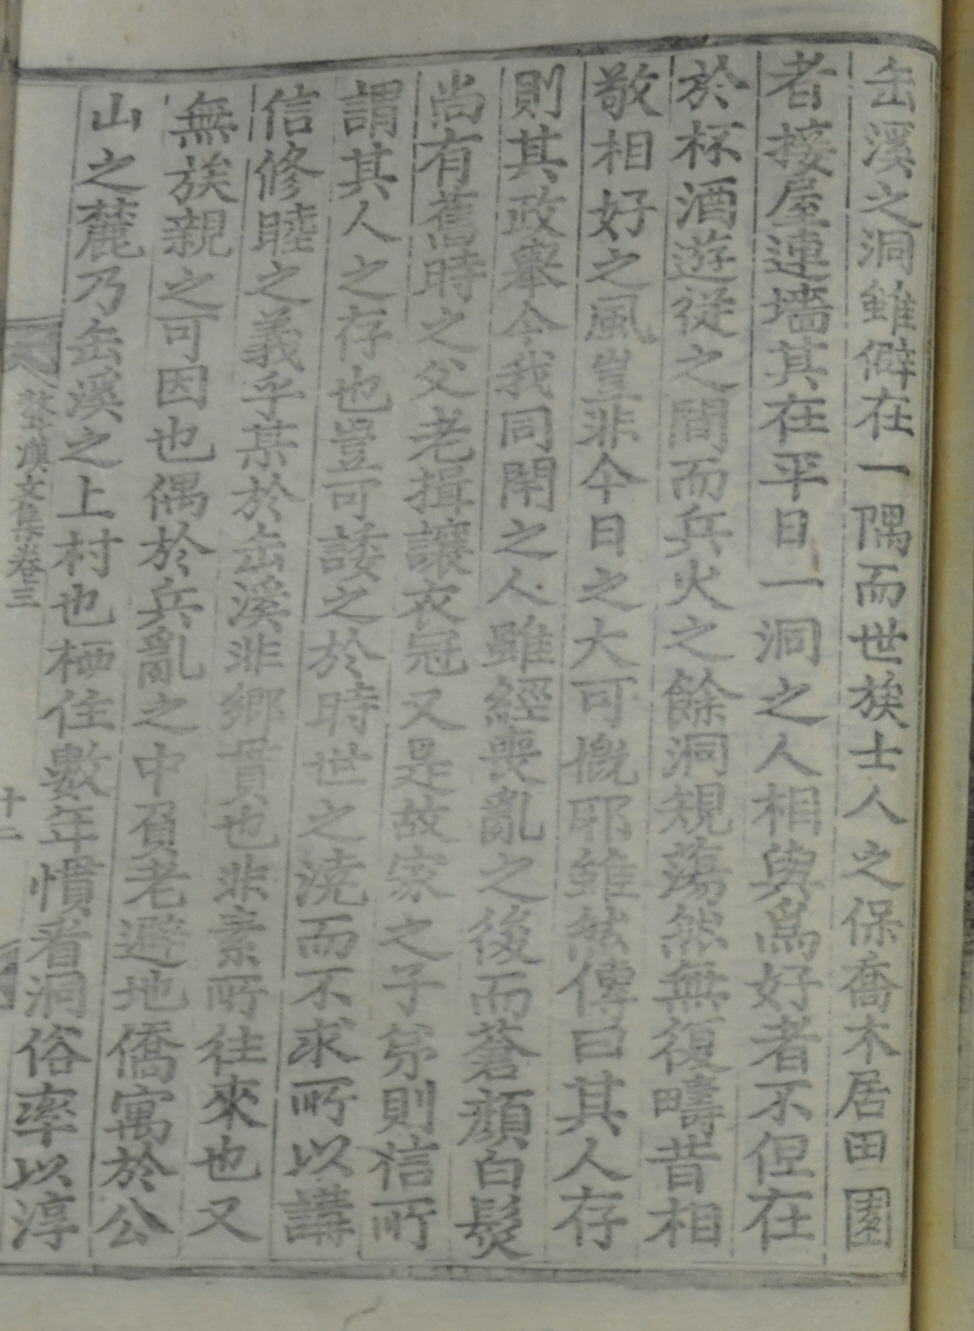 缶溪之洞雖僻在一隅而世族士人之保喬木居田園
者接屋連墻其在平日一洞之人相與爲好者不但在
於杯酒遊從之間而兵火之餘洞規蕩然無復疇昔相
敬相好之風豈非今日之大可慨邪雖然傳曰其人存
則其政擧今我同閈之人雖經喪亂之後而蒼顔白髮
尚有舊時之父老揖讓衣冠又是故家之子弟則信所
謂其人之存也豈可諉之於時世之澆而不求所以講
信修睦之義乎某於缶溪非鄉貫也非素所往來也又
無族親之可因也偶於兵亂之中負老避地僑寓於公
山之麓乃缶溪之上村也栖住數年慣看洞俗率以淳
聱漢文集卷三
十二